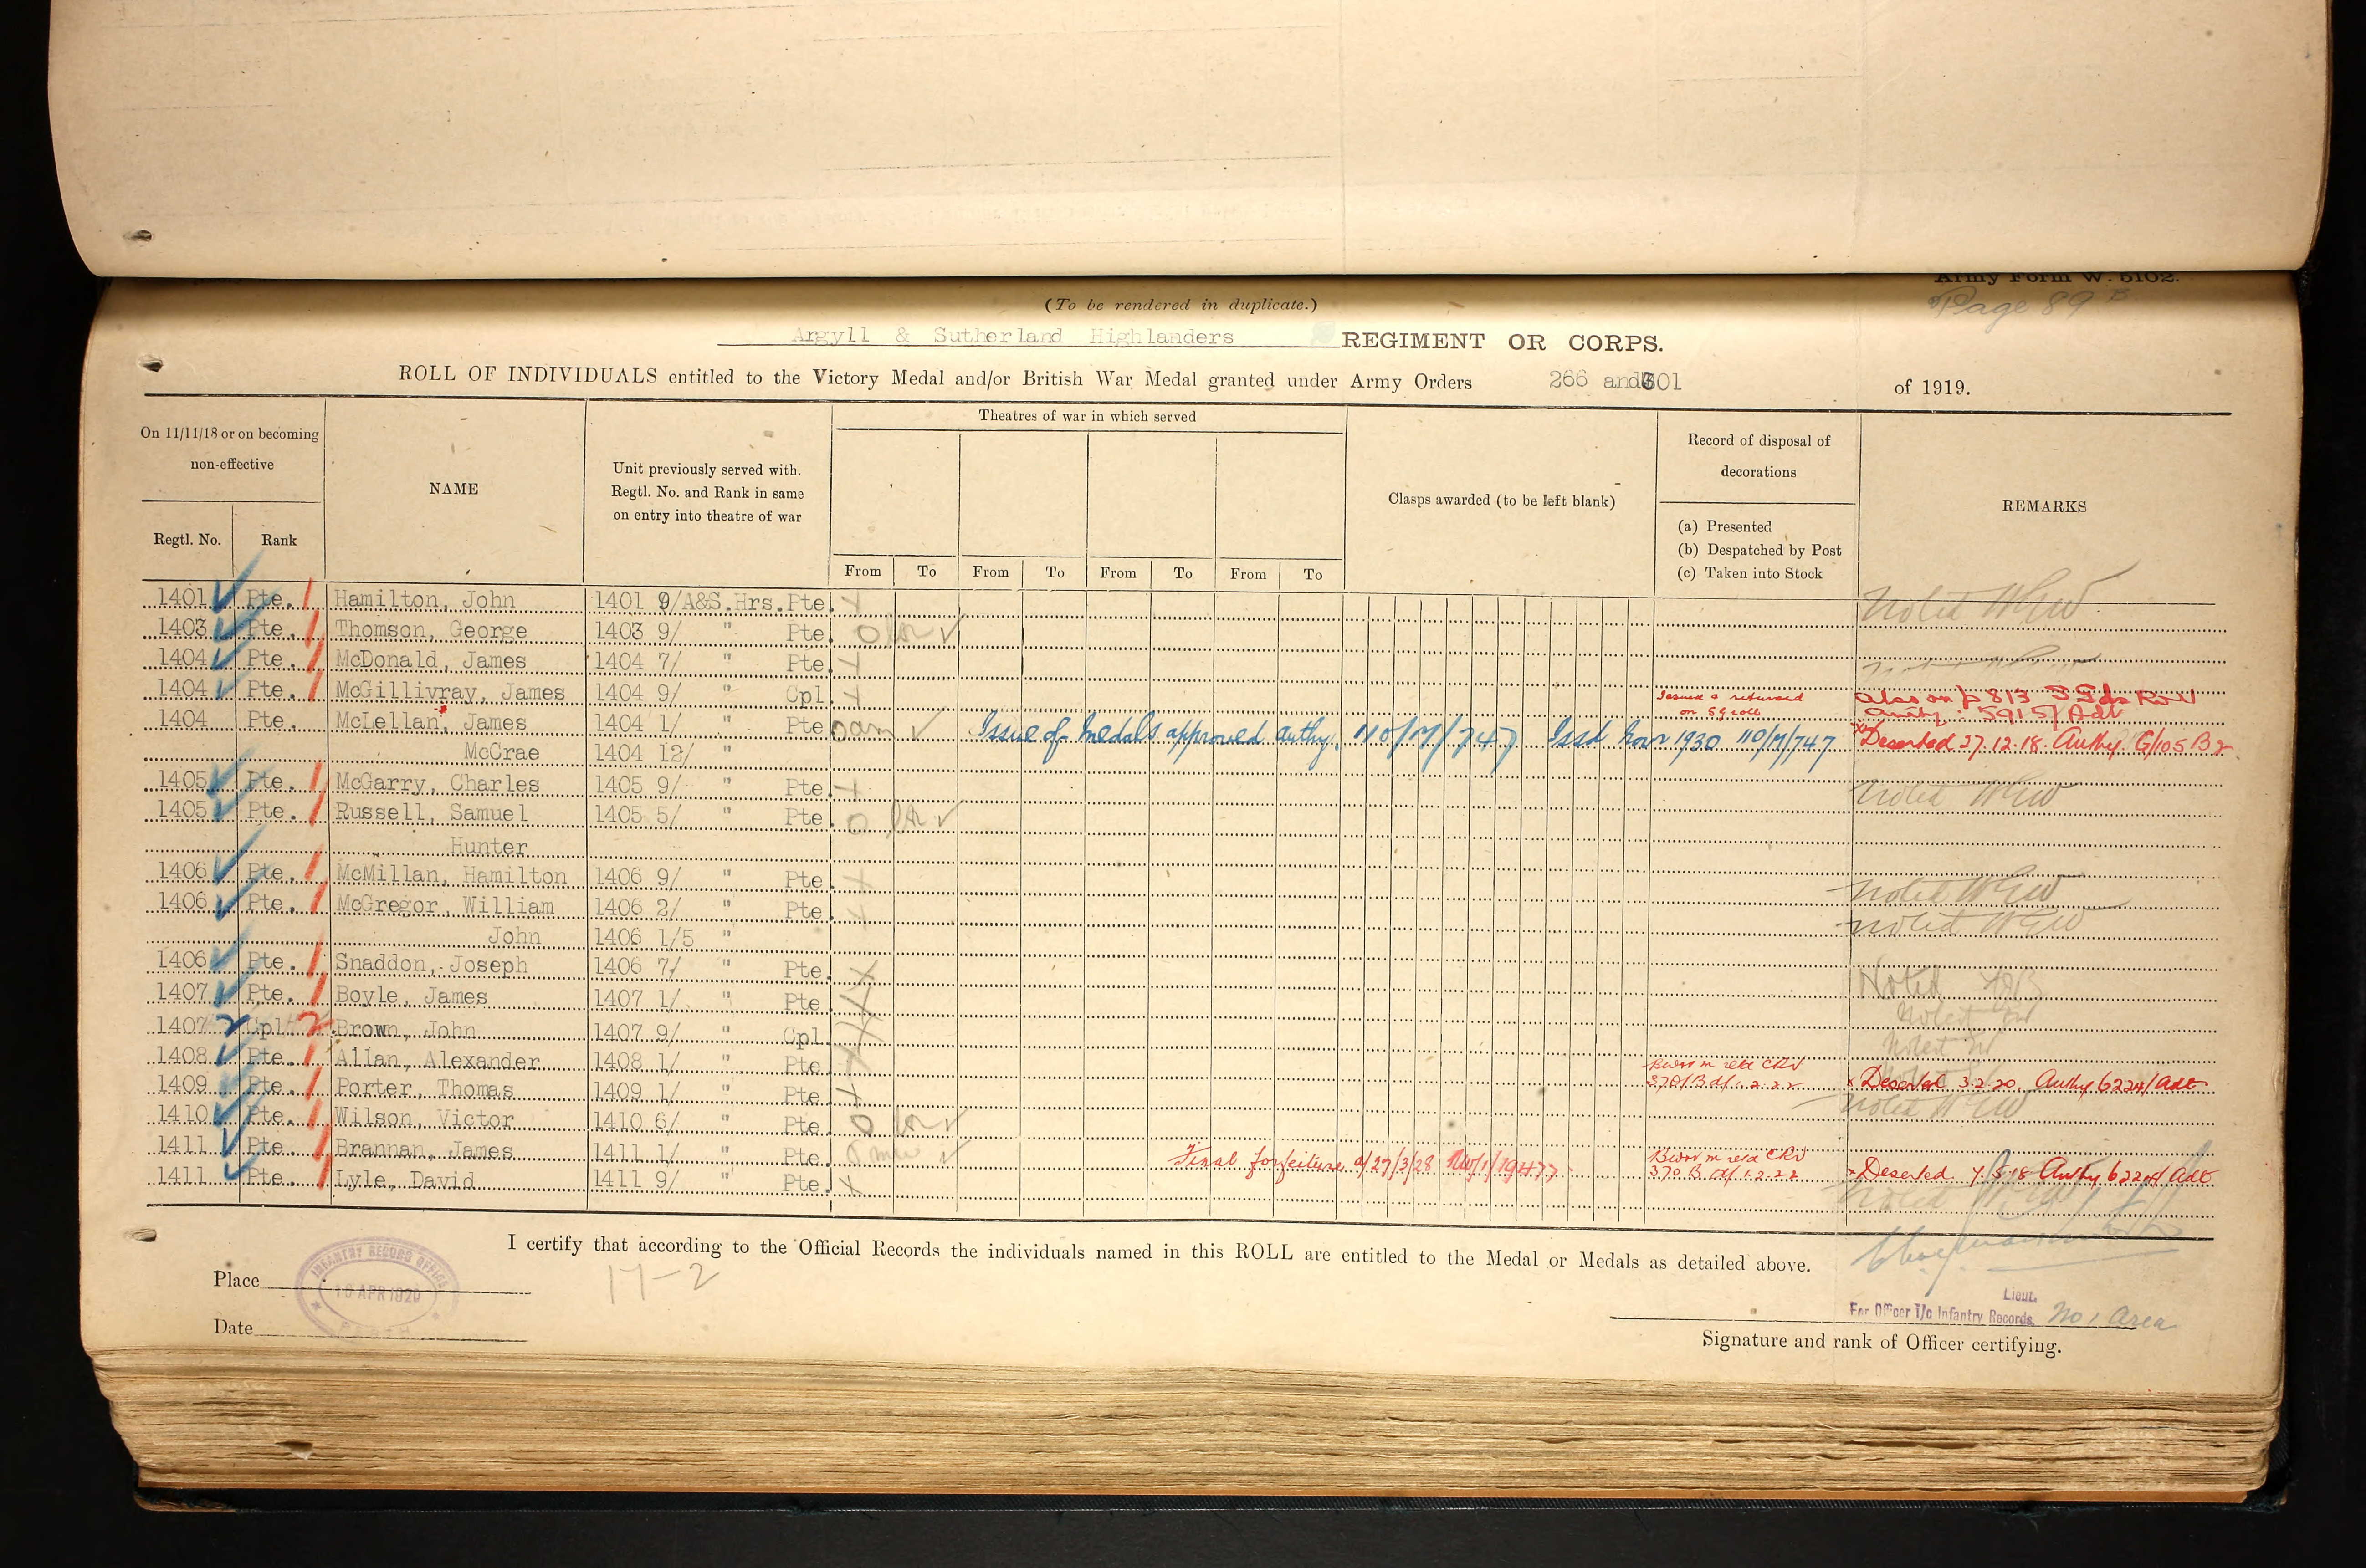 Army Form W. 5102.
Page 89
(To be rendered in duplicate.)
Argyll & Sutherland Highlanders REGIMENT OR CORPS.
ROLL OF INDIVIDUALS entitled to the Victory Medal and/or British War Medal granted under Army Orders 266 and 301 of 1919.
On 11/11/18 or on becoming non-effective
Regtl. No.
Rank
NAME
Unit previously served with.
Regtl. No. and Rank in same
on entry into theatre of war
Theatres of war in which served
From To From To From To From To
Clasps awarded (to be left blank)
Record of disposal of
decorations
(a) Presented
(b) Despatched by Post
(c) Taken into Stock
REMARKS
1401 Pte. 1 Hamilton, John 1401 9/A&S.Hrs.Pte. X Noted
1403 Pte. 1 Thomson, George 1403 9/ " Pte. O
1404 Pte. 1 McDonald, James 1404 7/ " Pte. X
1404 Pte. 1 McGillivray, James 1404 9/ " Cpl X
Issued & returned Also on p 813
1404 Pte. McLellan, James 1404 1/ " Pte
Issue of Medals approved authy. 110/M/747 Issd Novr 1930 110/M/747 Deserted 27.12.18. Authy G/105 B2
McCrae 1404 12/ "
1405 Pte. 1 McGarry, Charles 1405 9/ " Pte. X Noted
1405 Pte. 1 Russell, Samuel 1405 5/ " Pte. O
Hunter
1406 Pte. 1 McMillan, Hamilton 1406 9/ " Pte. X Noted
1406 Pte. 1 McGregor, William 1406 2/ " Pte. X Noted
John 1406 1/5 "
1406 Pte. 1 Snaddon, Joseph 1406 7/ " Pte. X Noted
1407 Pte. 1 Boyle, James 1407 1/ " Pte. X Noted
1407 2 Cpl 2 Brown, John 1407 9/ " Cpl X Noted
1408 Pte. 1 Allan, Alexander 1408 1/ " Pte. X
1409 Pte. 1 Porter, Thomas 1409 1/ " Pte. X Deserted 3.2.20. Authy
1410 Pte. 1 Wilson, Victor 1410 6/ " Pte. O Noted
1411 Pte. 1 Brannan, James 1411 1/ " Pte.
Final forfeiture Deserted Authy
1411 Pte. 1 Lyle, David 1411 9/ " Pte. X Noted
I certify that according to the Official Records the individuals named in this ROLL are entitled to the Medal or Medals as detailed above.
17-2
Place
INFANTRY RECORD OFFICE
APR 1920
Date
Lieut.
For Officer I/c Infantry Records, No 1 Area
Signature and rank of Officer certifying.